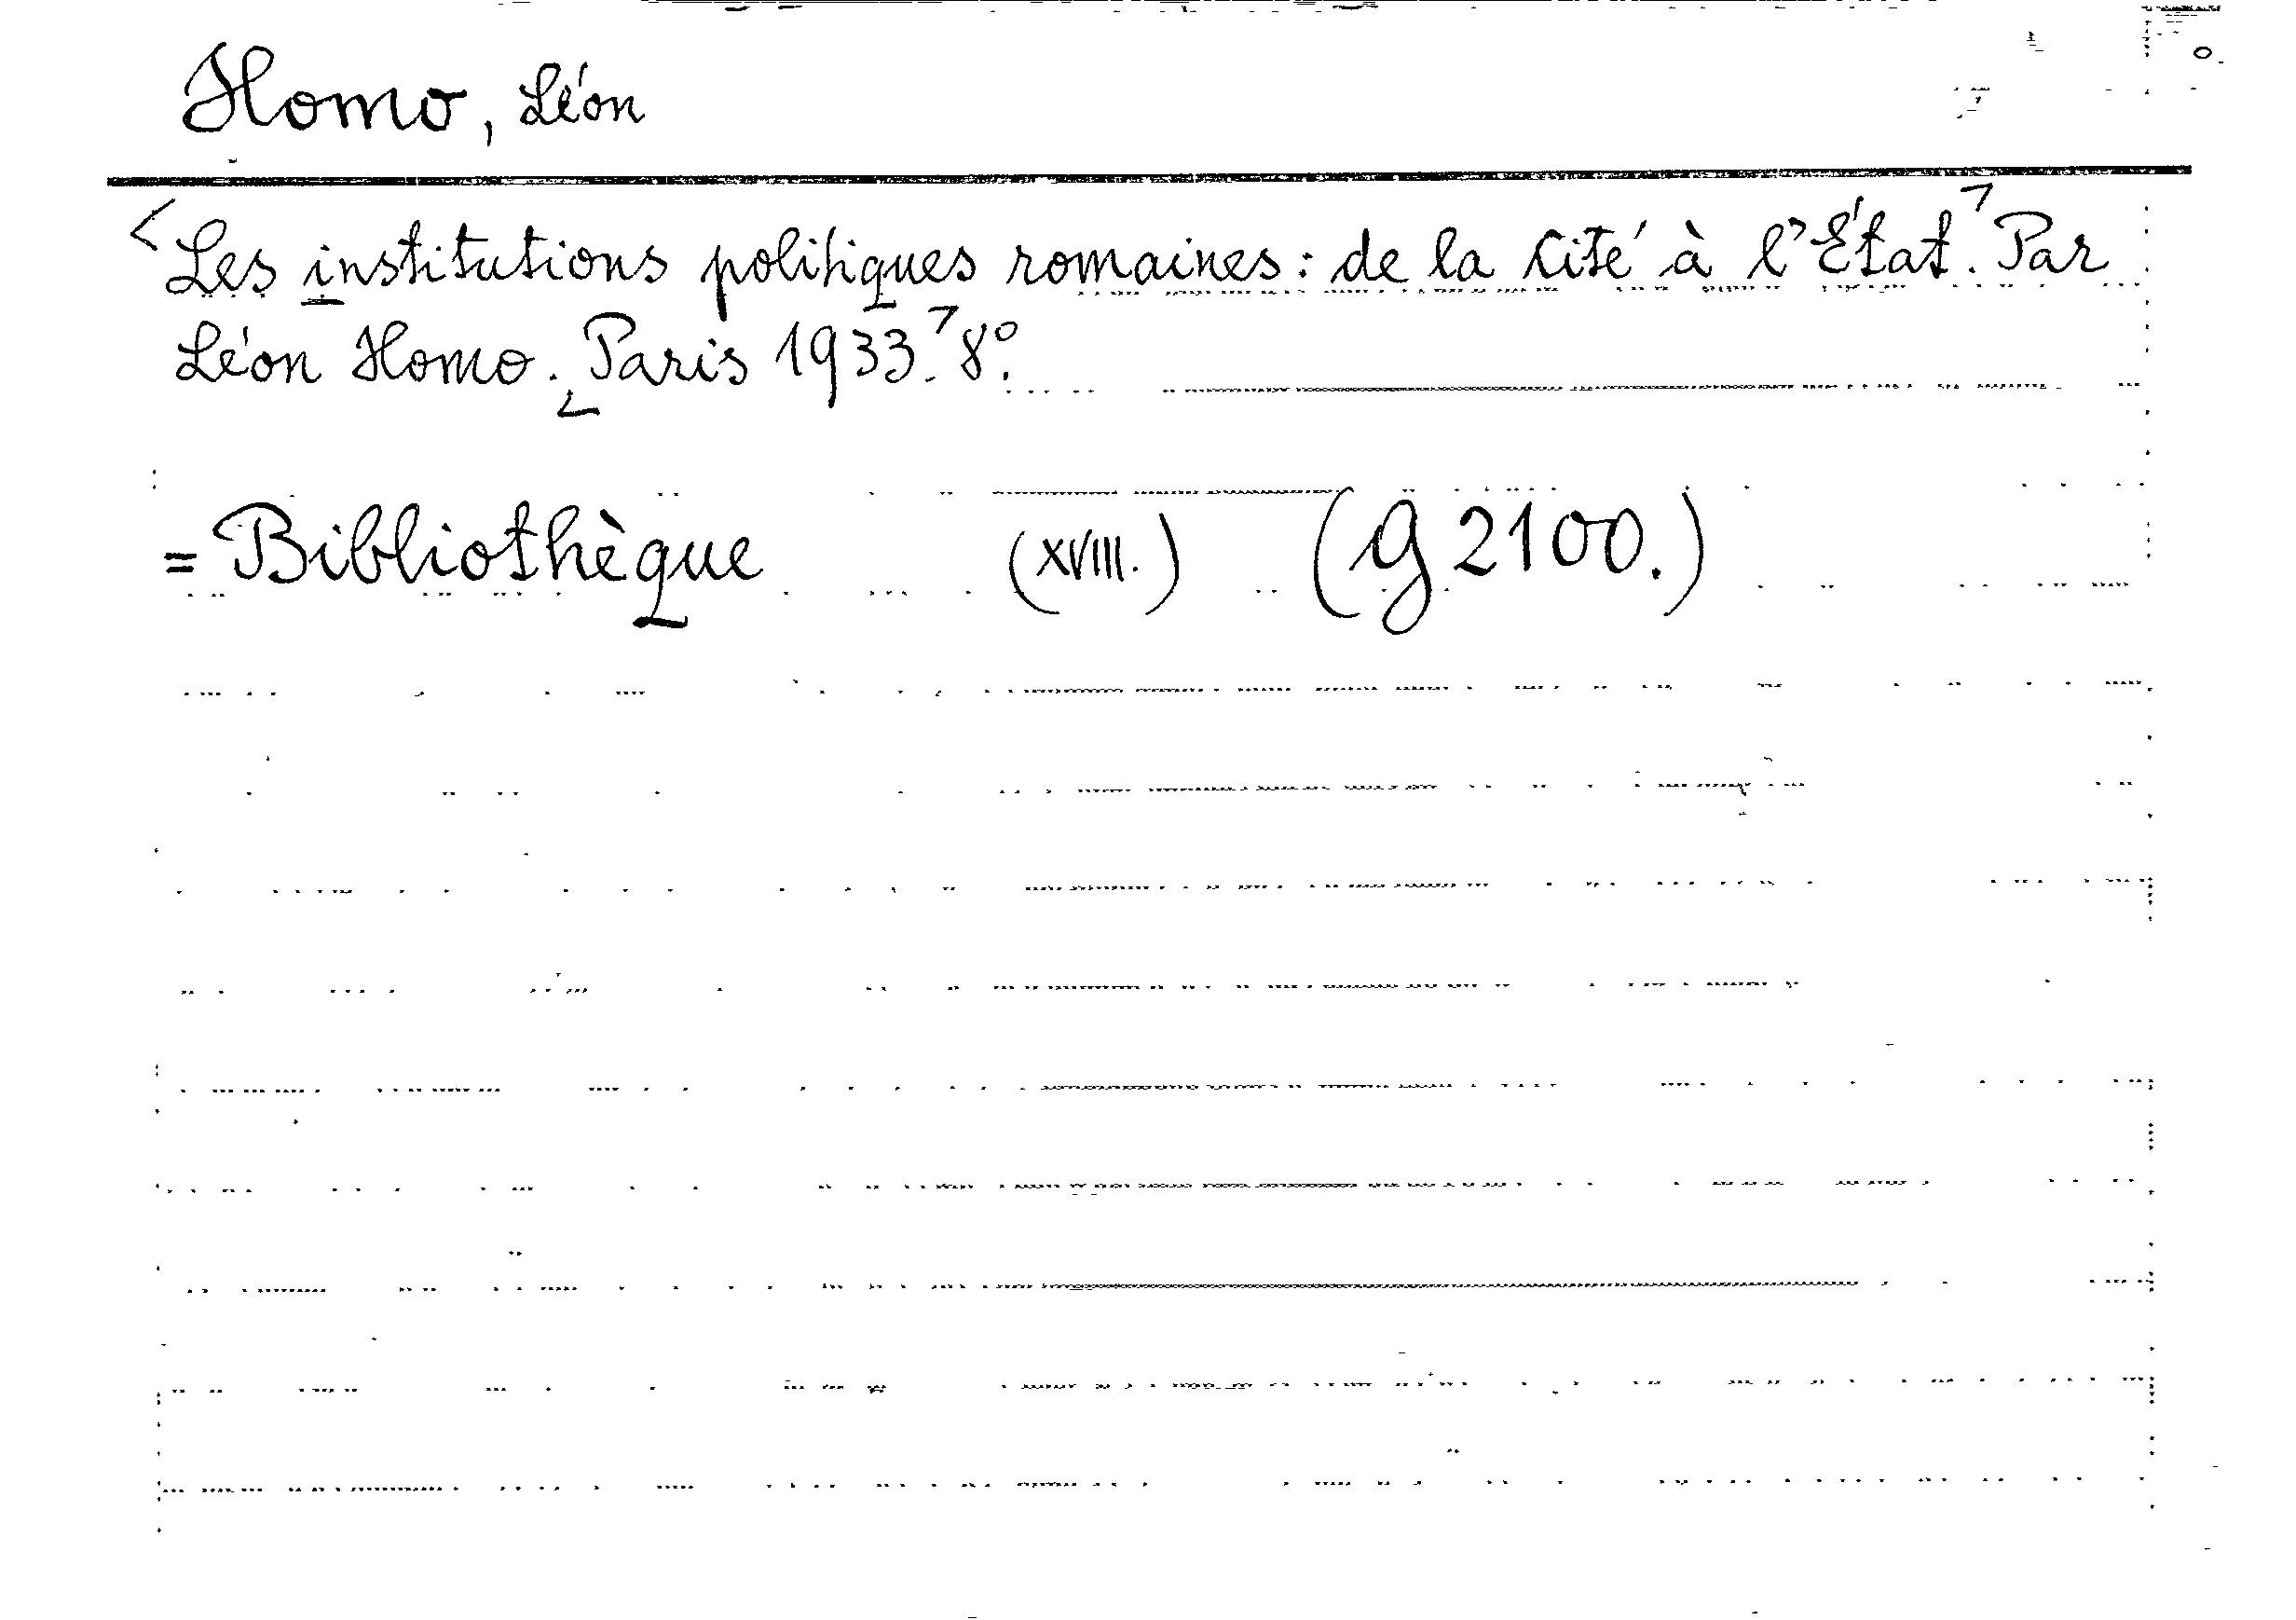 Homo, Léon
Les institutions politiques romaines: de la Cité à l'État. Par
Léon Homo. Paris 1933. 8°.
= Bibliothèque (XVIII.) (g 2100.)